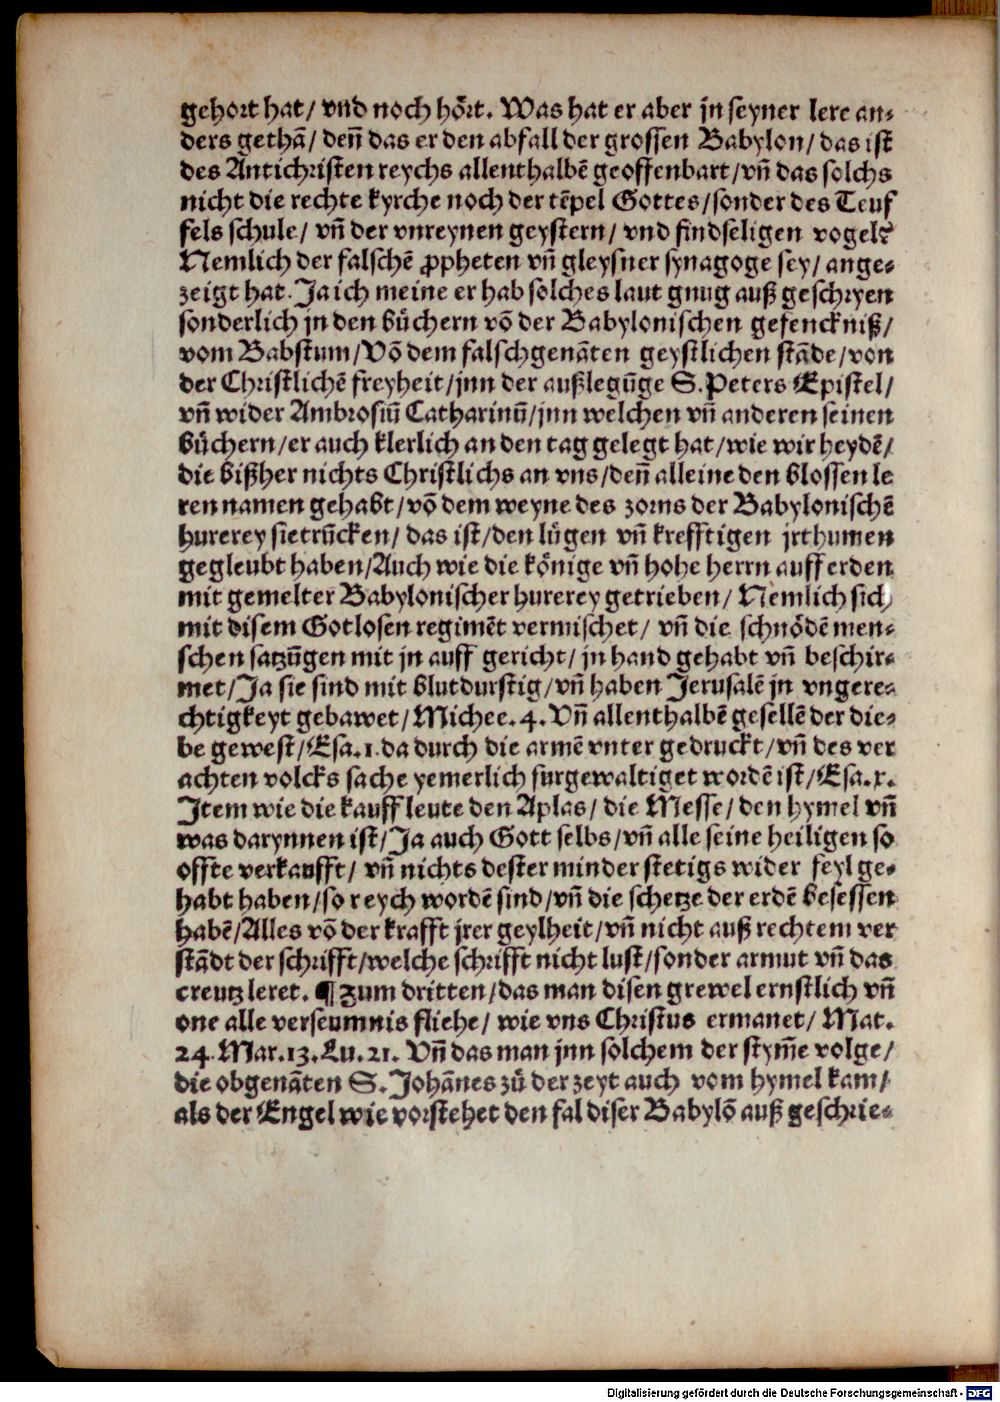 gehort hat/ vnd noch hört. Was hat er aber jn seyner lere an-
ders gethā/ deñ das er den abfall der grossen Babylon/ das ist
des Antichristen reychs allenthalbē geoffenbart/ vñ das solchs
nicht die rechte kyrche noch der tēpel Gottes/ sonder des Teuf
fels schule/ vñ der vnreynen geystern/ vnd findseligen vogel?
Nemlich der falschē ꝓpheten vñ gleysner synagoge sey/ ange-
zeigt hat. Ja ich meine er hab solches laut gnug auß geschryen
sonderlich jn den bůchern vō der Babylonischen gefenckniß/
vom Babstum/ Vō dem falschgenāten geystlichen stāde/ von
der Christlichē freyheit/ jnn der außlegūge S. Peters Epistel/
vñ wider Ambrosiū Catharinū/ jnn welchen vñ anderen seinen
bůchern/ er auch klerlich an den tag gelegt hat/ wie wir heydē/
die bißher nichts Christlichs an vns/ deñ alleine den blossen le
ren namen gehabt/ vō dem weyne des zorns der Babylonischē
hurerey sietrūcken/ das ist/ den lůgen vñ krefftigen jrthumen
gegleubt haben/ Auch wie die könige vñ hohe herrn auff erden
mit gemelter Babylonischer hurerey getrieben/ Nemlich sich
mit disem Gotlosen regimēt vermischet/ vñ die schnödē men-
schen satzūgen mit jn auff gericht/ jn hand gehabt vñ beschir-
met/ Ja sie sind mit blutdurstig/ vñ haben Jerusalē jn vngere-
chtigkeyt gebawet/ Michee. 4. Vñ allenthalbē gesellē der die-
be gewest/ Esa. 1. da durch die armē vnter gedruckt/ vñ des ver
achten volcks sache yemerlich furgewaltiget wordē ist/ Esa. x.
Item wie die kauff leute den Aplas/ die Messe/ den hymel vñ
was darynnen ist/ Ja auch Gott selbs/ vñ alle seine heiligen so
offte verkaufft/ vñ nichts dester minder stetigs wider feyl ge-
habt haben/ so reych wordē sind/ vñ die schetze der erdē besessen
habē/ Alles vō der krafft jrer geylheit/ vñ nicht auß rechtem ver
stādt der schrifft/ welche schrifft nicht lust/ sonder armut vñ das
creutz leret. ¶ Zum dritten/ das man disen grewel ernstlich vñ
one alle verseumnis fliehe/ wie vns Christus ermanet/ Mat.
24. Mar. 13. Lu. 21. Vñ das man jnn solchem der stym̄e volge/
die obgenāten S. Johānes zů der zeyt auch vom hymel kam/
als der Engel wie vorstehet den fal diser Babylō auß geschrie-
Digitalisierung gefördert durch die Deutsche Forschungsgemeinschaft - DFG